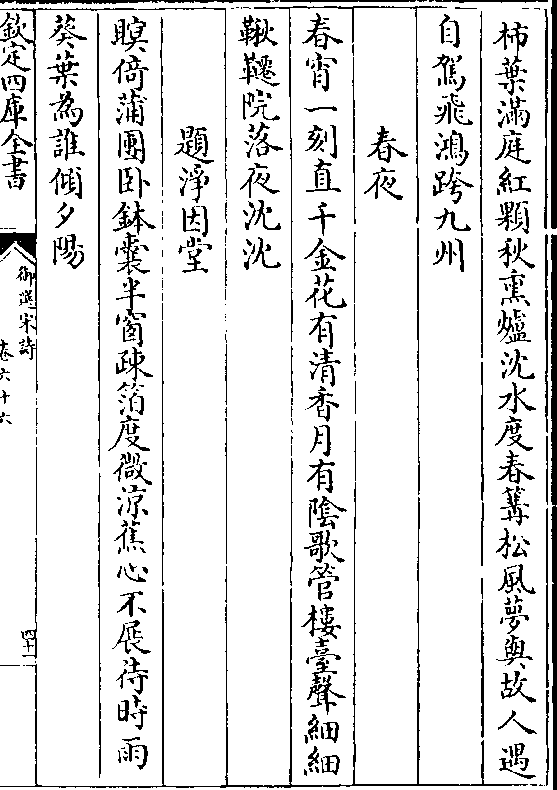 柿葉滿庭紅顆秋熏爐沈水度春篝松風夢與故人遇
自駕飛鴻跨九州
春夜
春宵一刻直千金花有清香月有陰歌管樓臺聲細細
鞦韆院落夜沈沈
題淨因堂
瞑倚蒲團卧鉢囊半窗疎箔度微涼蕉心不展待時雨
葵葉為誰傾夕陽
欽定四庫全書
御選宋詩
卷六十六
四十一